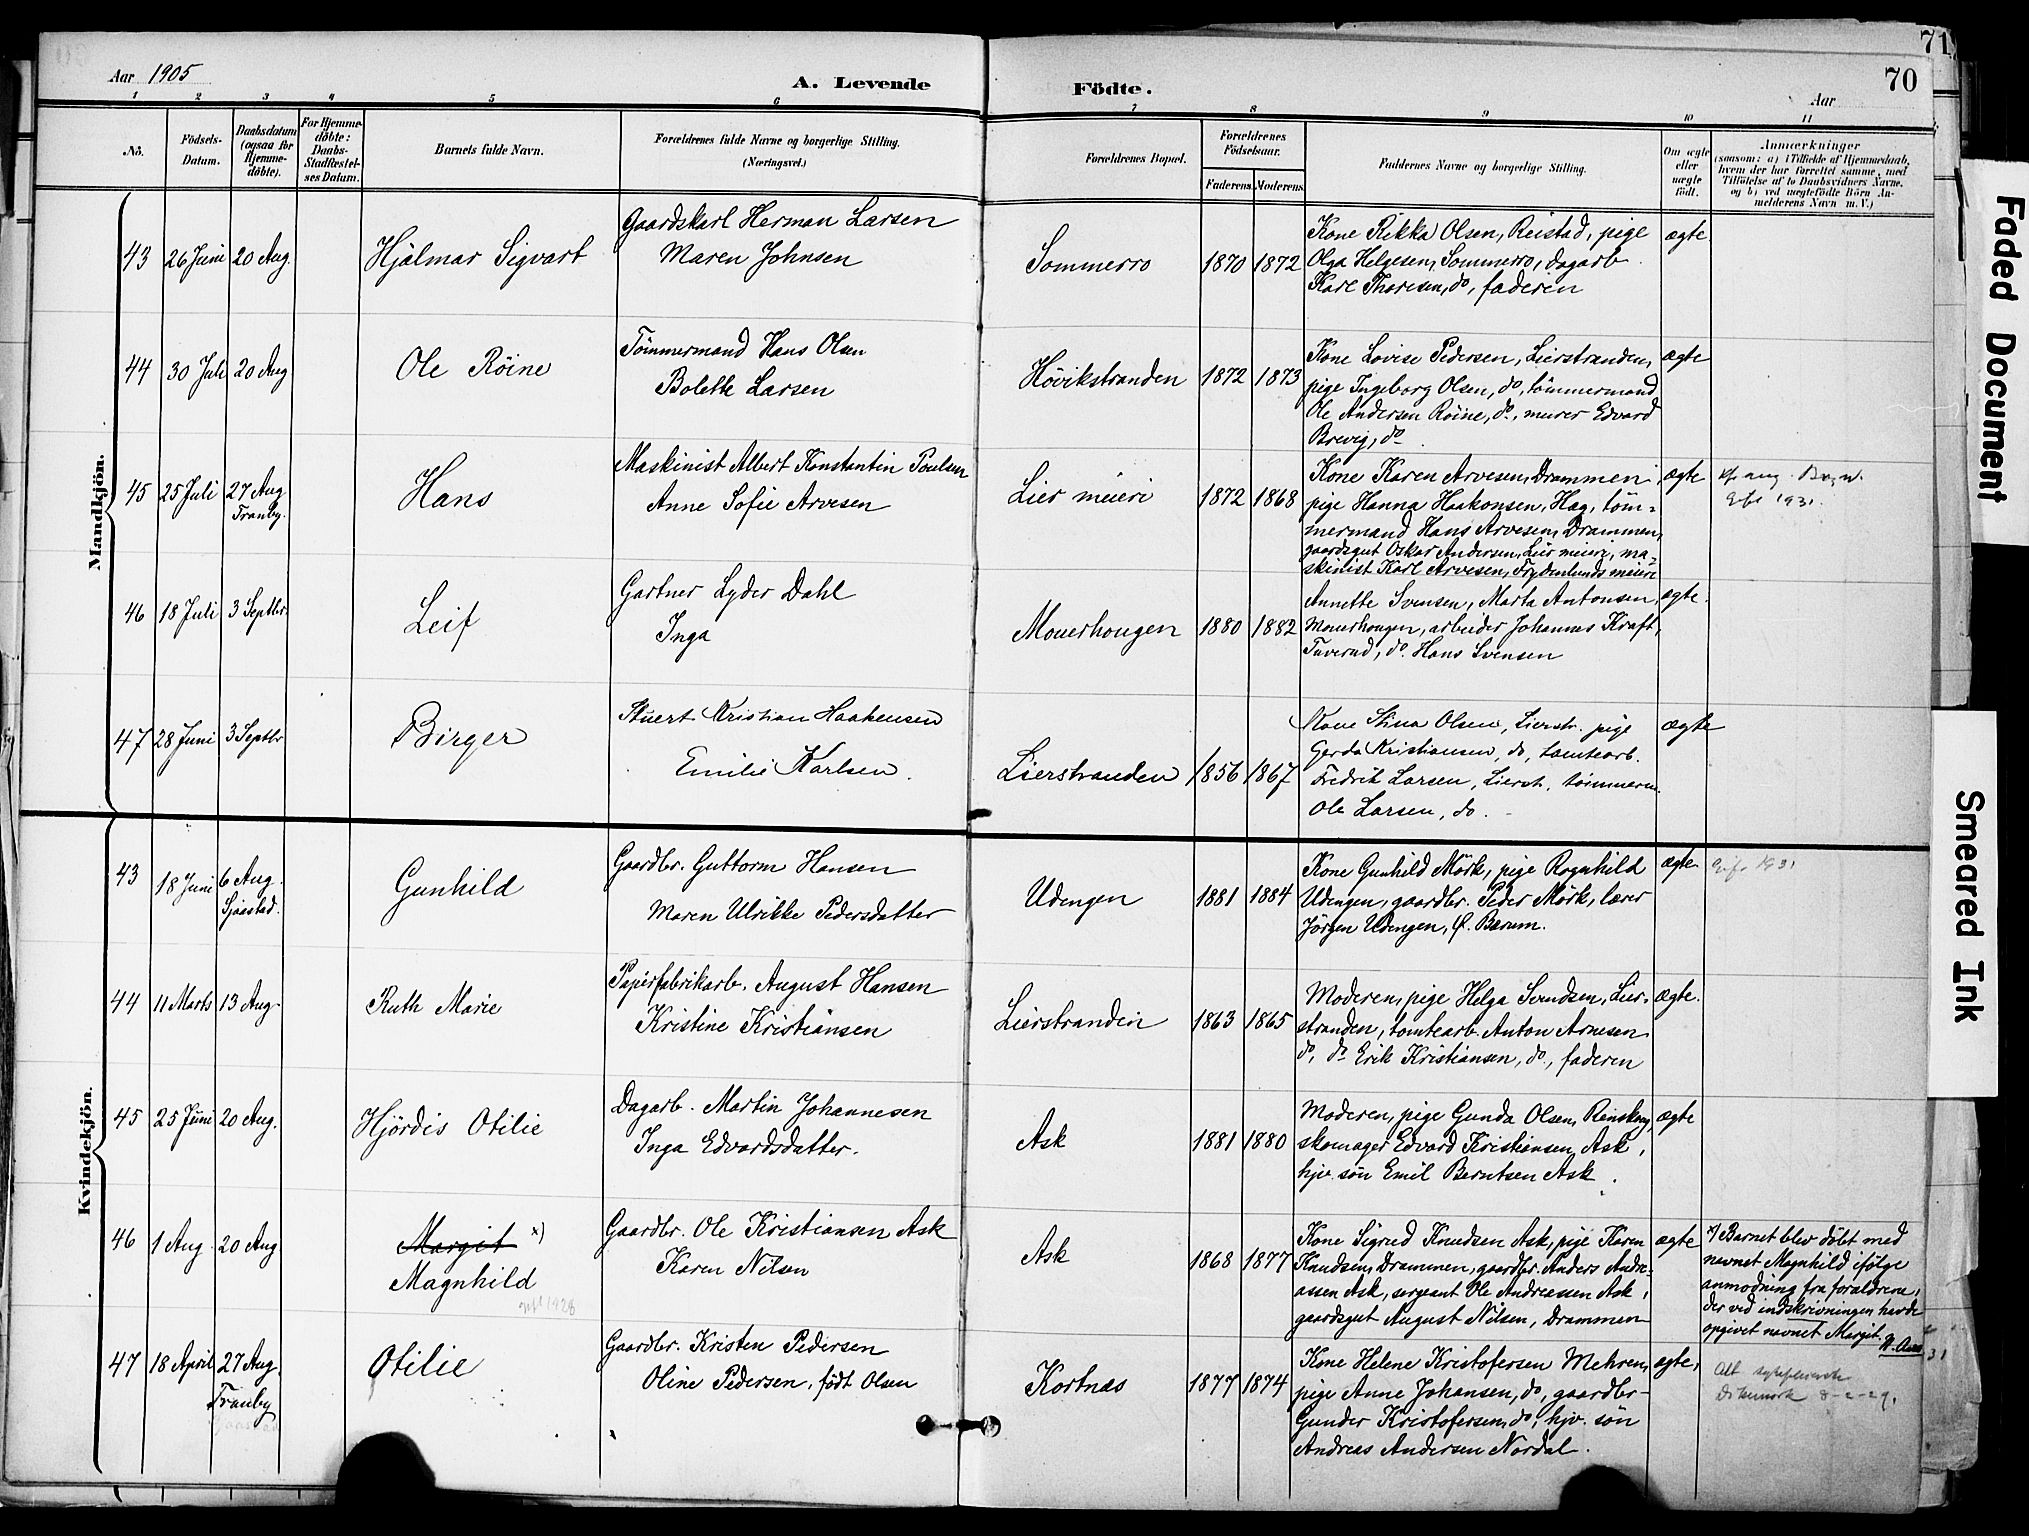 71
70
Aar 1905
A. Levende
Födte.
Aar
1 2 3 4 5 6 7 8 9 10 11
No.
Födsels-Datum.
Daabsdatum (ogsaa for Hjemme-döbte).
For Hjemme-döbte: Daabs-Stadfæstel-ses Datum.
Barnets fulde Navn.
Forældrenes fulde Navne og borgerlige Stilling.
(Næringsvei.)
Forældrenes Bopæl.
Forældrenes Födselsaar.
Faderens. Moderens.
Faddernes Navne og borgerlige Stilling.
Om ægte eller uægte födt.
Anmærkninger
(saasom: a) i Tilfælde af Hjemmedaab, hvem der har forrettet samme, med Tilföielse af to Daabsvidners Navne, og b) ved uægtefödte Börn Anmelderens Navn m. V.)
Mandkjön.
43 26 Juni 20 Aug. Hjalmar Sigvart
Gaardskarl Herman Larsen
Maren Johnsen
Sommerro 1870 1872
Kone Rikka Olsen, Reistad, pige
Olga Helgesen, Sommerro, dagarb.
Karl Thoresen, do, faderen
ægte
44 30 Juli 20 Aug Ole Röine
Tömmermand Hans Olsen
Bolette Larsen
Hövikstranden 1872 1873
Kone Lovise Pedersen, Lierstranden,
pige Ingeborg Olsen, do, tömmermand
Ole Andersen Röine, do, murer Edvard
Brevig, do
ægte
45 25 Juli 27 Aug Tranby. Hans
Maskinist Albert Konstantin Poulsen
Anne Sofie Arvesen
Lier meieri 1872 1868
Kone Karen Arvesen, Drammen
pige Hanna Haakonsen, Hag, töm-
mermand Hans Arvesen, Drammen,
gaardsgut Oskar Andersen, Lier meieri, ma-
skinist Karl Arvesen, Frydenlunds meieri
ægte
1931
46 18 Juli 3 Septbr Leif
Gartner Lyder Dahl
Inga
Mouerhougen 1880 1882
Annette Svensen, Marta Antonsen,
Mouerhougen, arbeider Johannes Kraft,
Tuverud, do. Hans Svensen
ægte.
47 28 Juni 3 Septbr Birger
Stuert Kristian Haakensen
Emilie Karlsen.
Lierstranden 1856 1867
Kone Stina Olsen, Lierstr. pige
Gerda Kristiansen, do, tomtearb.
Fredrik Larsen, Lierstr, tömmerm.
Ole Larsen, do.
ægte
Kvindekjön.
43 18 Juni 6 Aug. Sjaastad. Gunhild
Gaardbr. Guttorm Hansen
Maren Ulrikke Pedersdatter
Udengen 1881 1884
Kone Gunhild Mörk, pige Ragnhild
Udengen, gaardbr. Peder Mörk, lærer
Jörgen Udengen, Ö. Bærum.
ægte
1931
44 11 Marts 13 Aug. Ruth Marie
Papirfabrikarb. August Hansen
Kristine Kristiansen
Lierstranden 1863 1865
Moderen, pige Helga Svendsen, Lier-
stranden, tomtearb. Anton Arnesen
do, do Erik Kristiansen, do, faderen
ægte.
45 25 Juni 20 Aug. Hjördis Otilie
Dagarb. Martin Johannesen
Inga Edvardsdatter.
Ask 1881 1880
Moderen, pige Gunda Olsen, Renskoug,
skomager Edvard Kristiansen Ask,
hjv. sön Emil Berntsen Ask.
ægte
46 1 Aug. 20 Aug Margit x)
Magnhild
1928
Gaardbr. Ole Kristiansen Ask
Karen Nilsen
Ask 1868 1877
Kone Sigrid Knudsen Ask, pige Karen
Knudsen, Drammen, gaardbr. Anders Andre-
assen Ask, sergeant Ole Andreassen Ask,
gaardsgut August Nilsen, Drammen
ægte
x) Barnet blev döbt med
navnet Magnhild ifölge
anmodning fra forældrene,
der ved indskrivningen havde
opgivet navnet Margit.
47 18 April 27 Aug. Tranby Otilie
Gaardbr. Kristen Pedersen
Oline Pedersen, födt Olsen
Kortnæs 1877 1874
Kone Helene Kristofersen Mehren,
pige Anne Johansen, do, gaardbr.
Gunder Kristofersen, do, hjv. sön
Andreas Andersen Nordal.
ægte,
8-2-29.
31
Faded Document
Smeared Ink